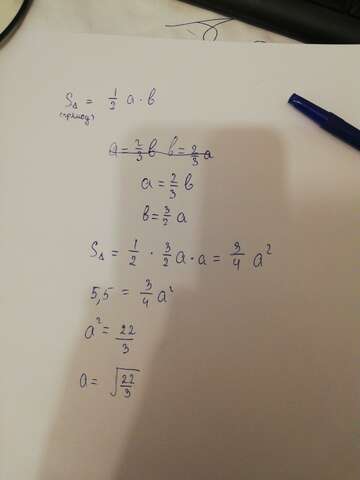 S△ = 1/2 a · b
(прямоуг)
a = 2/3 b b = 2/3 a
a = 2/3 b
b = 3/2 a
S△ = 1/2 · 3/2 a · a = 3/4 a²
5,5 = 3/4 a²
a² = 22/3
a = √22/3